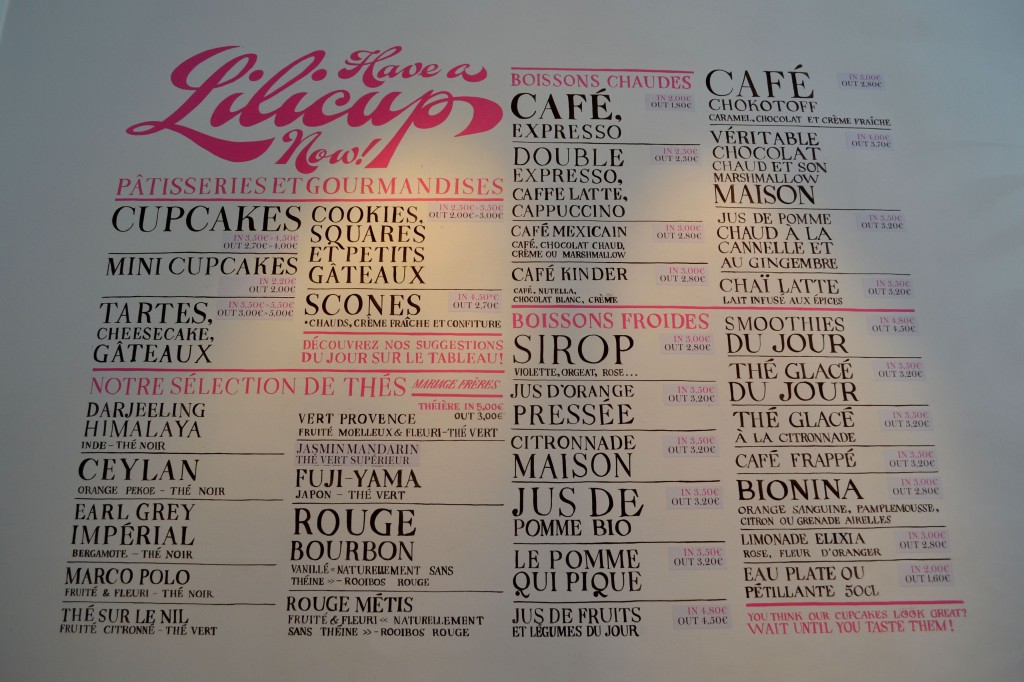 Have a
Lilicup
Now!
PÂTISSERIES ET GOURMANDISES
CUPCAKES
IN 3,50€-4,50€
OUT 2,70€-4,00€
MINI CUPCAKES
IN 2.20€
OUT 2.00€
TARTES,
CHEESECAKE,
GÂTEAUX
IN 3,50€-5,50€
OUT 3,00€-5,00€
COOKIES,
SQUARES
ET PETITS
GÂTEAUX
IN 2,50€-3,50€
OUT 2.00€-3,00€
SCONES
IN 4,50€
OUT 2,70€
•CHAUDS, CRÈME FRAÎCHE ET CONFITURE
DÉCOUVREZ NOS SUGGESTIONS
DU JOUR SUR LE TABLEAU!
NOTRE SÉLECTION DE THÉS MARIAGE FRÈRES
THÉIÈRE IN 5,00€
OUT 3,00€
DARJEELING
HIMALAYA
INDE - THÉ NOIR
CEYLAN
ORANGE PEKOE - THÉ NOIR
EARL GREY
IMPÉRIAL
BERGAMOTE - THÉ NOIR
MARCO POLO
FRUITÉ & FLEURI - THÉ NOIR
THÉ SUR LE NIL
FRUITÉ CITRONNÉ - THÉ VERT
VERT PROVENCE
FRUITÉ MOELLEUX & FLEURI-THÉ VERT
JASMIN MANDARIN
THÉ VERT SUPÉRIEUR
FUJI-YAMA
JAPON - THÉ VERT
ROUGE
BOURBON
VANILLÉ «NATURELLEMENT SANS
THÉINE »- ROOIBOS ROUGE
ROUGE MÉTIS
FRUITÉ & FLEURI « NATURELLEMENT
SANS THÉINE »- ROOIBOS ROUGE
BOISSONS CHAUDES
CAFÉ,
EXPRESSO
IN 2,00€
OUT 1,80€
DOUBLE
EXPRESSO,
CAFFE LATTE,
CAPPUCCINO
IN 2,50€
OUT 2,30€
CAFÉ MEXICAIN
IN 3,00€
OUT 2,80€
CAFÉ, CHOCOLAT CHAUD,
CRÈME OU MARSHMALLOW
CAFÉ KINDER
IN 3,00€
OUT 2,80€
CAFÉ, NUTELLA,
CHOCOLAT BLANC, CRÈME
BOISSONS FROIDES
SIROP
IN 3,00€
OUT 2,80€
VIOLETTE, ORGEAT, ROSE...
JUS D'ORANGE
PRESSÉE
IN 3,50€
OUT 3,20€
CITRONNADE
MAISON
IN 3,50€
OUT 3,20€
JUS DE
POMME BIO
IN 3,50€
OUT 3,20€
LE POMME
QUI PIQUE
IN 3,50€
OUT 3,20€
JUS DE FRUITS
ET LÉGUMES DU JOUR
IN 4,80€
OUT 4,50€
CAFÉ
CHÔKOTOFF
IN 3,00€
OUT 2,80€
CARAMEL, CHOCOLAT ET CRÈME FRAÎCHE
VÉRITABLE
CHOCOLAT
CHAUD ET SON
MARSHMALLOW
MAISON
IN 4,00€
OUT 3,70€
JUS DE POMME
CHAUD À LA
CANNELLE ET
AU GINGEMBRE
IN 3,50€
OUT 3,20€
CHAÏ LATTE
LAIT INFUSÉ AUX ÉPICES
IN 3,50€
OUT 3,20€
SMOOTHIES
DU JOUR
IN 4,80€
OUT 4,50€
THÉ GLACÉ
DU JOUR
IN 3,50€
OUT 3,20€
THÉ GLACÉ
À LA CITRONNADE
IN 3,50€
OUT 3,20€
CAFÉ FRAPPÉ
IN 3,50€
OUT 3,20€
BIONINA
IN 3,00€
OUT 2,80€
ORANGE SANGUINE, PAMPLEMOUSSE,
CITRON OU GRENADE AIRELLES
LIMONADE ELIXIA
ROSE, FLEUR D'ORANGER
IN 3,00€
OUT 2,80€
EAU PLATE OU
PÉTILLANTE 50CL
IN 2,00€
OUT 1,60€
YOU THINK OUR CUPCAKES LOOK GREAT?
WAIT UNTIL YOU TASTE THEM!